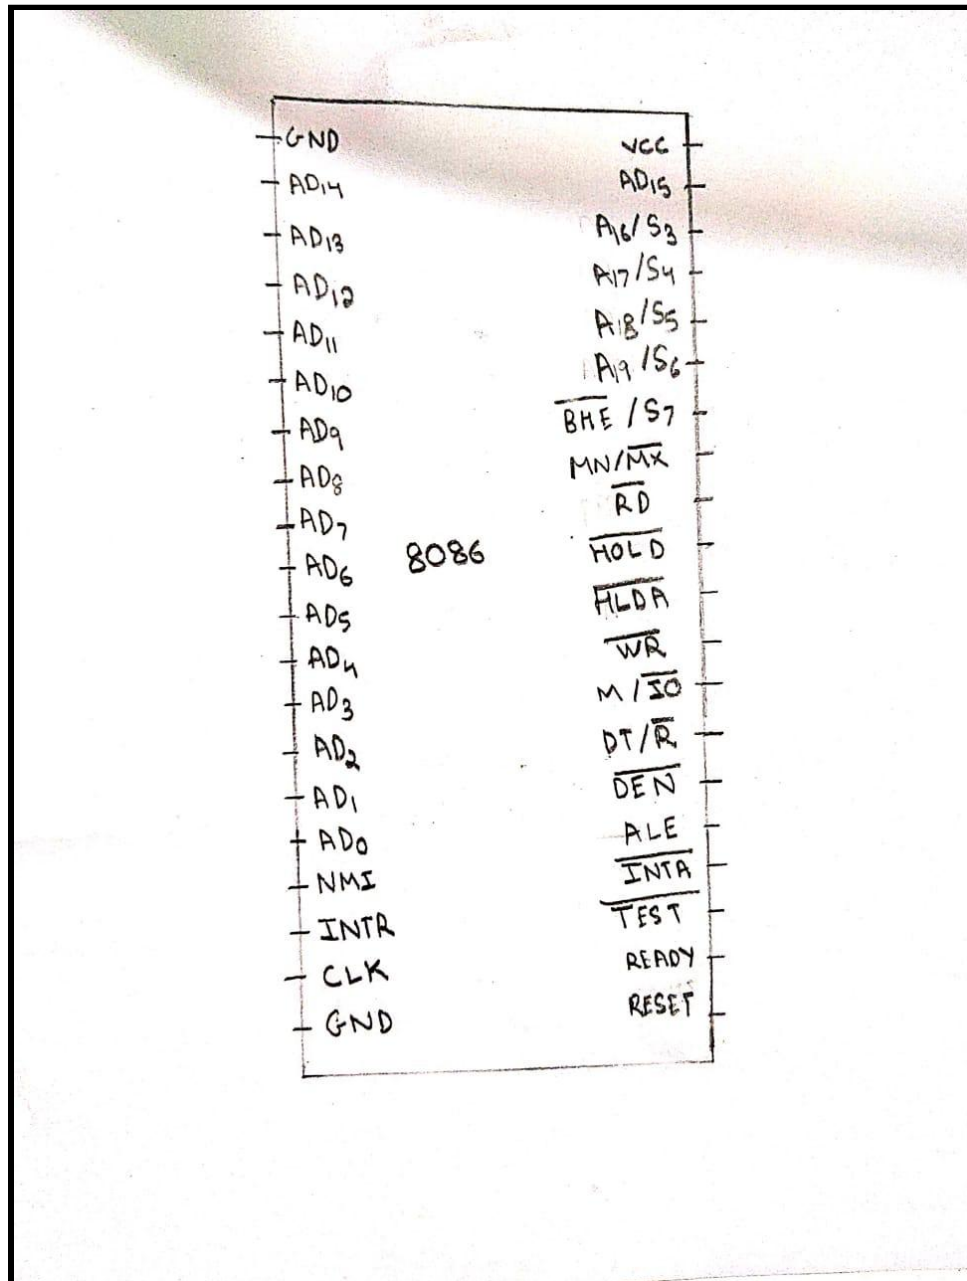 GND
AD14
AD13
AD12
AD11
AD10
AD9
AD8
AD7
AD6
AD5
AD4
AD3
AD2
AD1
AD0
NMI
INTR
CLK
GND
8086
VCC
AD15
A16/S3
A17/S4
A18/S5
A19/S6
B̅H̅E̅/S7
MN/M̅X̅
R̅D̅
H̅O̅L̅D̅
H̅L̅D̅A̅
W̅R̅
M/I̅O̅
DT/R̅
D̅E̅N̅
ALE
I̅N̅T̅A̅
T̅E̅S̅T̅
READY
RESET